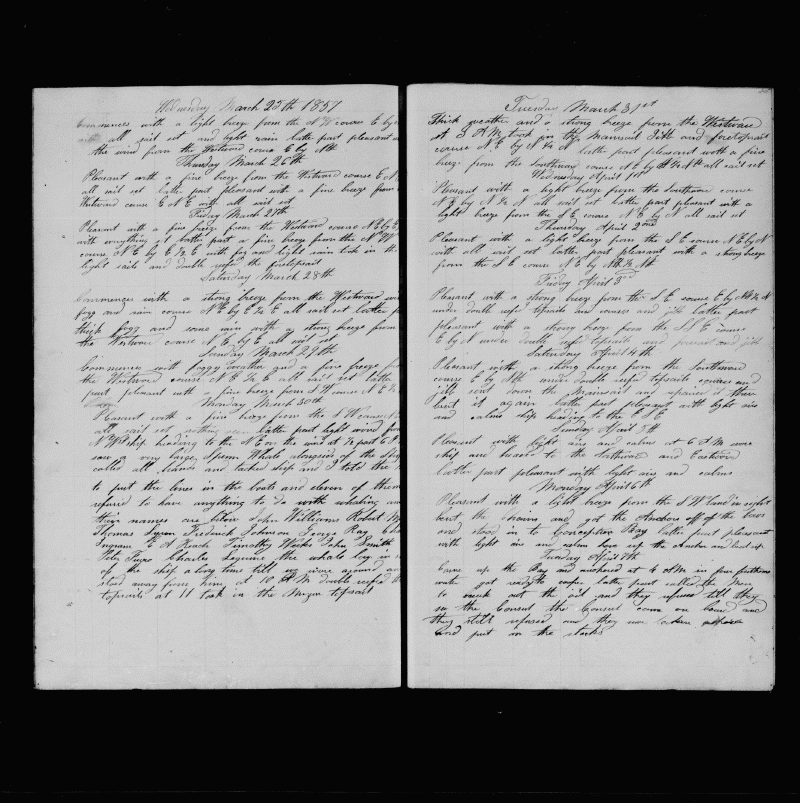 Wednesday March 25th 1857
Commences with a light breeze from the N W course E by
all sail set and light rain latter part pleasant
the wind from the Westward course E by N
Thursday March 26th
Pleasant with a fine breeze from the Westward course E N
all sail set latter part pleasant with a fine breeze from
Westward course E N E with all sail set
Friday March 27th
Pleasant with a fine breeze from the Westward course N E by E
with everything set latter part a fine breeze from the N W
course N E by E ½ E with fog and light rain took in the
light sails and double reefed the foretopsail
Saturday March 28th
Commences with a strong breeze from the Westward with
fogg and rain course N E by E ½ E all sail set latter p
thick fogg and some rain with a strong breeze from
the Westward course N E by E all sail set
Sunday March 29th
Commences with foggy weather and a fine breeze from
the Westward course N E ½ E all sail set latter
part pleasant with a fine breeze from S W course N E ½
Monday March 30th
Pleasant with a fine breeze from the S W course
all sail set latter part light wind from
N W ship heading to the N E on the wind at ½ past 6 A
saw a very large Sperm Whale alongside of the ship
called all hands and tacked ship and I told the
to put the lines in the boats and eleven of them
refused to have anything to do with whaling and
their names are below John Williams Robert
Thomas Frederick Johnson George Ray
Ingram E A Timothy Weeks John Smith
Peter Charles the whale lay in
of the ship a long time till we were
stood away from him at 10 P M double reefed
topsails at 11 took in the Mizen topsail
Tuesday March 31st
Thick weather and a strong breeze from the Westward
at 3 A M took in the Mainsail Jibb and foretopsail
course N E by N ½ N latter part pleasant with a fine
breeze from the Southward course N E by N ½ N all sail set
Wednesday April 1st
Pleasant with a light breeze from the Southward course
N E by N ½ N all sail set latter part pleasant with a
light breeze from the S E course N E by N all sail set
Thursday April 2nd
Pleasant with a light breeze from the S E course N E by N
with all sail set latter part pleasant with a strong breeze
from the S E course N E by N ½ N
Friday April 3rd
Pleasant with a strong breeze from the S E course E by N ½ N
under double reefed topsails and courses and jibb latter part
pleasant with a strong breeze from the S E course
E by N under double reefed topsails and foresail and jibb
Saturday April 4th
Pleasant with a strong breeze from the Southward
course E by N under double reefed topsails courses and
jibb sent down the Mainsail and repaired it then
bent it again latter part pleasant with light airs
and calms ship heading to the E S E
Sunday April 5th
Pleasant with light airs and calms at 6 P M wore
ship and headed to the Northward and Eastward
latter part pleasant with light airs and calms
Monday April 6th
Pleasant with a light breeze from the S W land in sight
bent the chains and got the Anchors off of the bows
and stood in to Conception Bay latter part pleasant
with light airs
Tuesday April 7th
Came up the Bay and anchored at 6 A M in five fathoms
water got ready to latter part called the Men
to break out the oil and they refused till they
saw the Consul the Consul came on board and
they still refused and they were taken
and put in the stocks